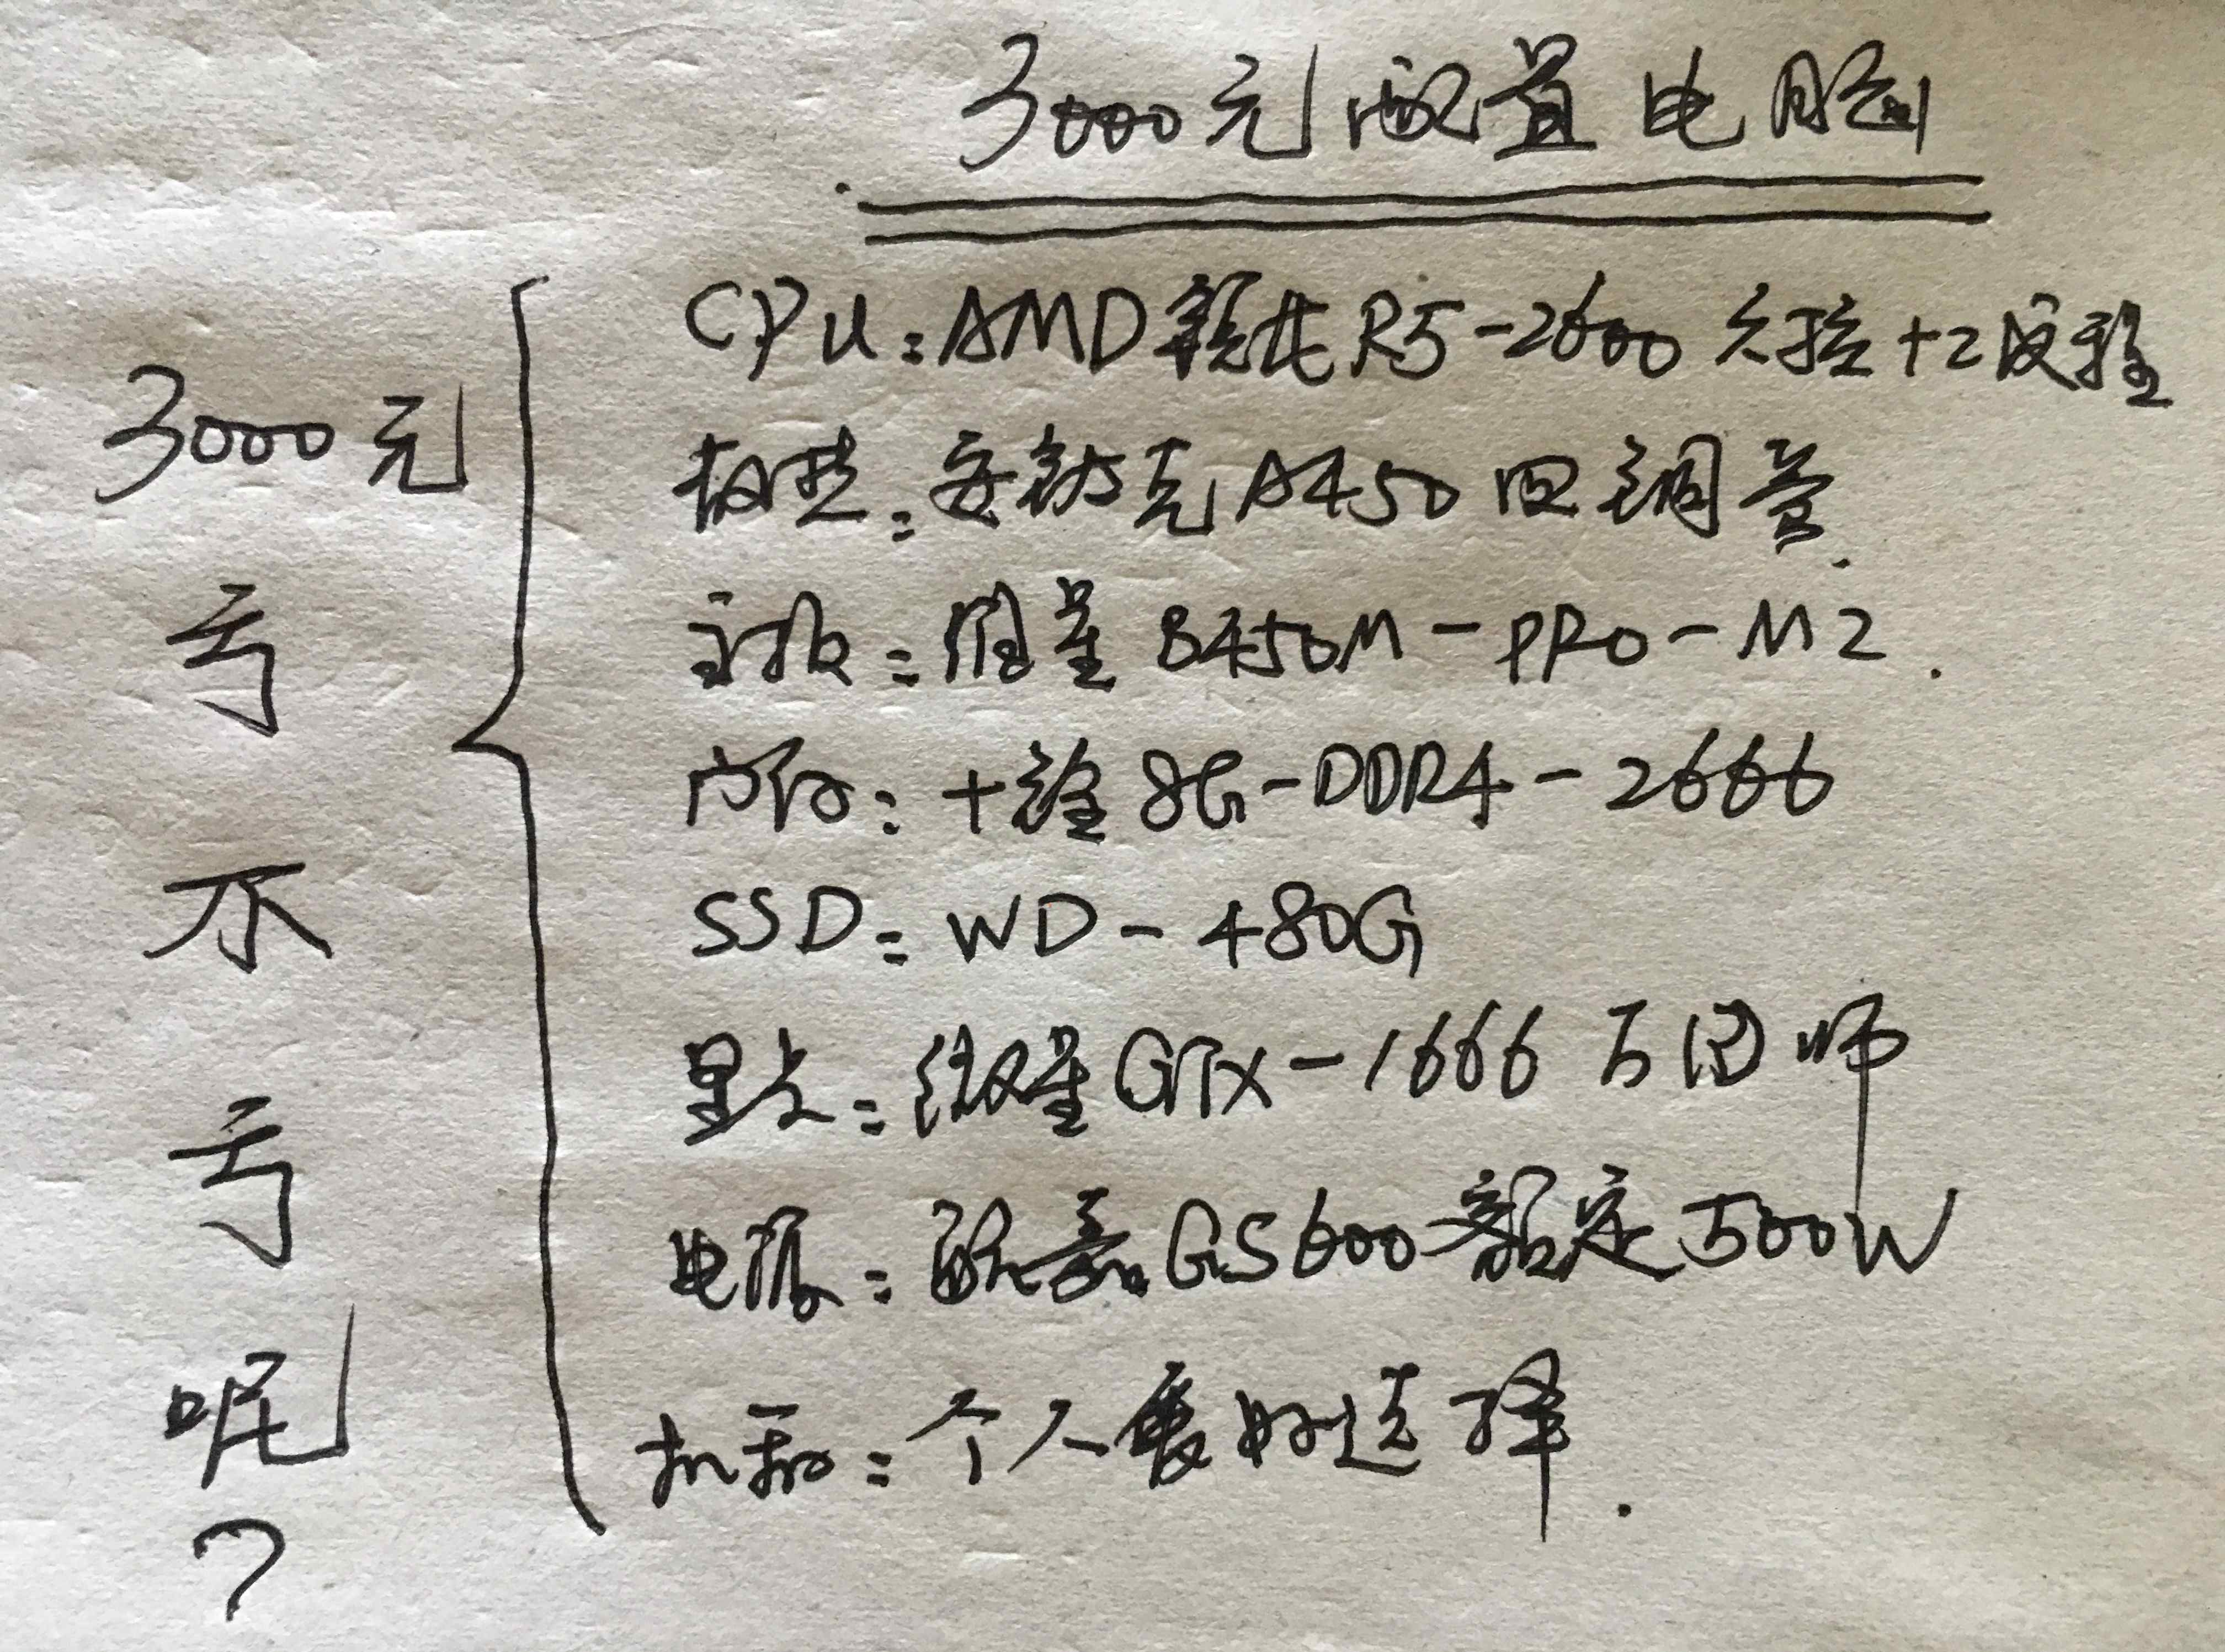 3000元配置电脑
3000元
亏
不
亏
呢
?
CPU:AMD锐龙R5-2600 六核12线程
散热:安钛克A450四铜管.
主板:微星B450M-PRO-M2.
内存:十铨8G-DDR4-2666
SSD:WD-480G
显卡:微星GTX-1666万图师
电源:航嘉GS600额定500W
机箱:个人爱好选择.